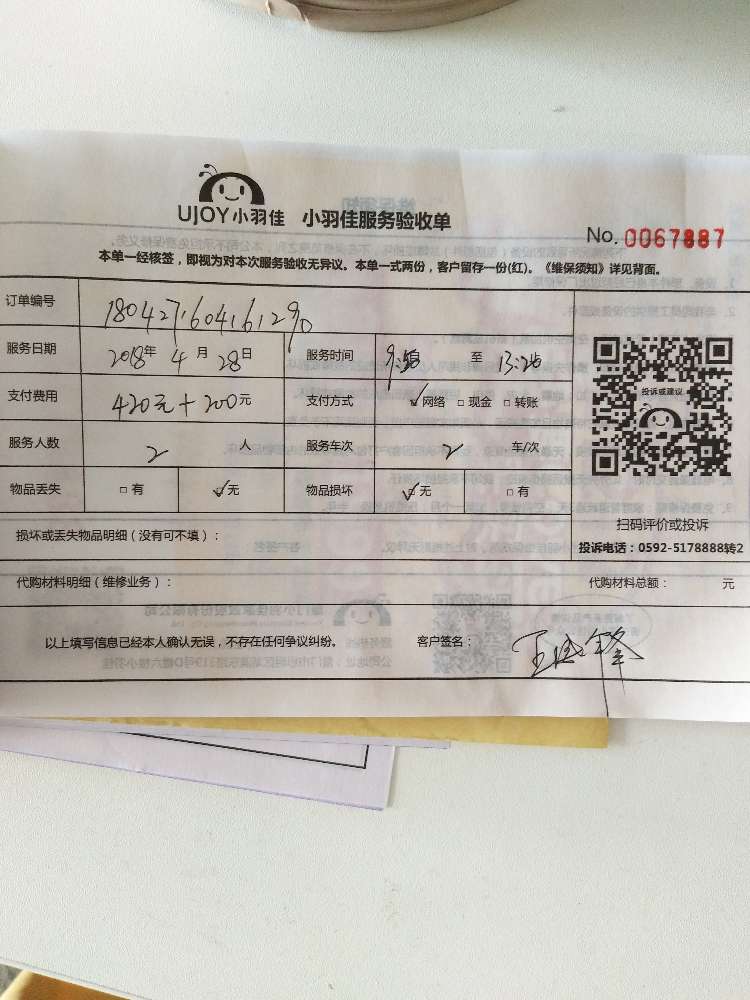 UJOY小羽佳 小羽佳服务验收单
No. 0067887
本单一经核签，即视为对本次服务验收无异议。本单一式两份，客户留存一份(红)。《维保须知》详见背面。
订单编号 1804271604161290
服务日期 2018年 4月 28日 服务时间 至 13:26
支付费用 420元+200元 支付方式 ☑网络 □现金 □转账
服务人数 2 人 服务车次 2 车/次
物品丢失 □有 ☑无 物品损坏 ☑无 □有
投诉或建议
扫码评价或投诉
投诉电话：0592-5178888转2
损坏或丢失物品明细（没有可不填）：
代购材料明细（维修业务）： 代购材料总额： 元
以上填写信息已经本人确认无误，不存在任何争议纠纷。 客户签名：